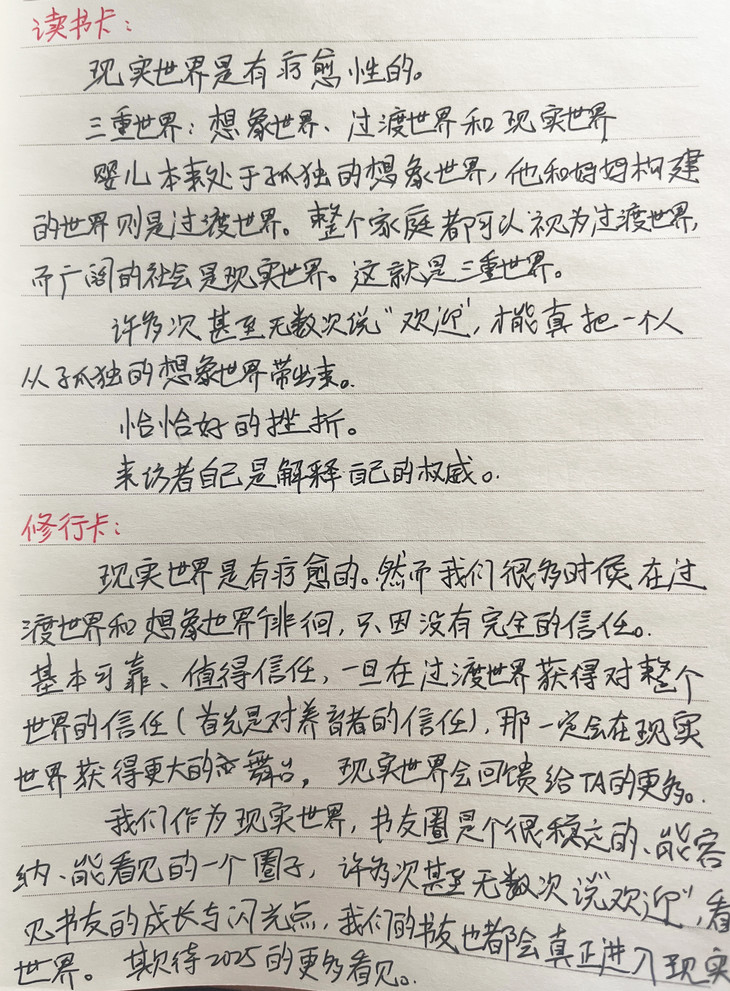 读书卡：
现实世界是有疗愈性的。
三重世界：想象世界、过渡世界和现实世界
婴儿本来处于孤独的想象世界，他和妈妈构建
的世界则是过渡世界。整个家庭都可以视为过渡世界，
而广阔的社会是现实世界。这就是三重世界。
许多次甚至无数次说“欢迎”，才能真把一个人
从孤独的想象世界带出来。
恰恰好的挫折。
来访者自己是解释自己的权威。
修行卡：
现实世界是有疗愈的。然而我们很多时候在过
渡世界和想象世界徘徊，只因没有完全的信任。
基本可靠、值得信任，一旦在过渡世界获得对整个
世界的信任（首先是对养育者的信任），那一定会在现实
世界获得更大的舞台，现实世界会回馈给TA的更多。
我们作为现实世界，书友圈是个很稳定的、能容
纳、能看见的一个圈子，许多次甚至无数次说“欢迎”，看
见书友的成长与闪光点，我们的书友也都会真正进入现实
世界。期待2025的更多看见。